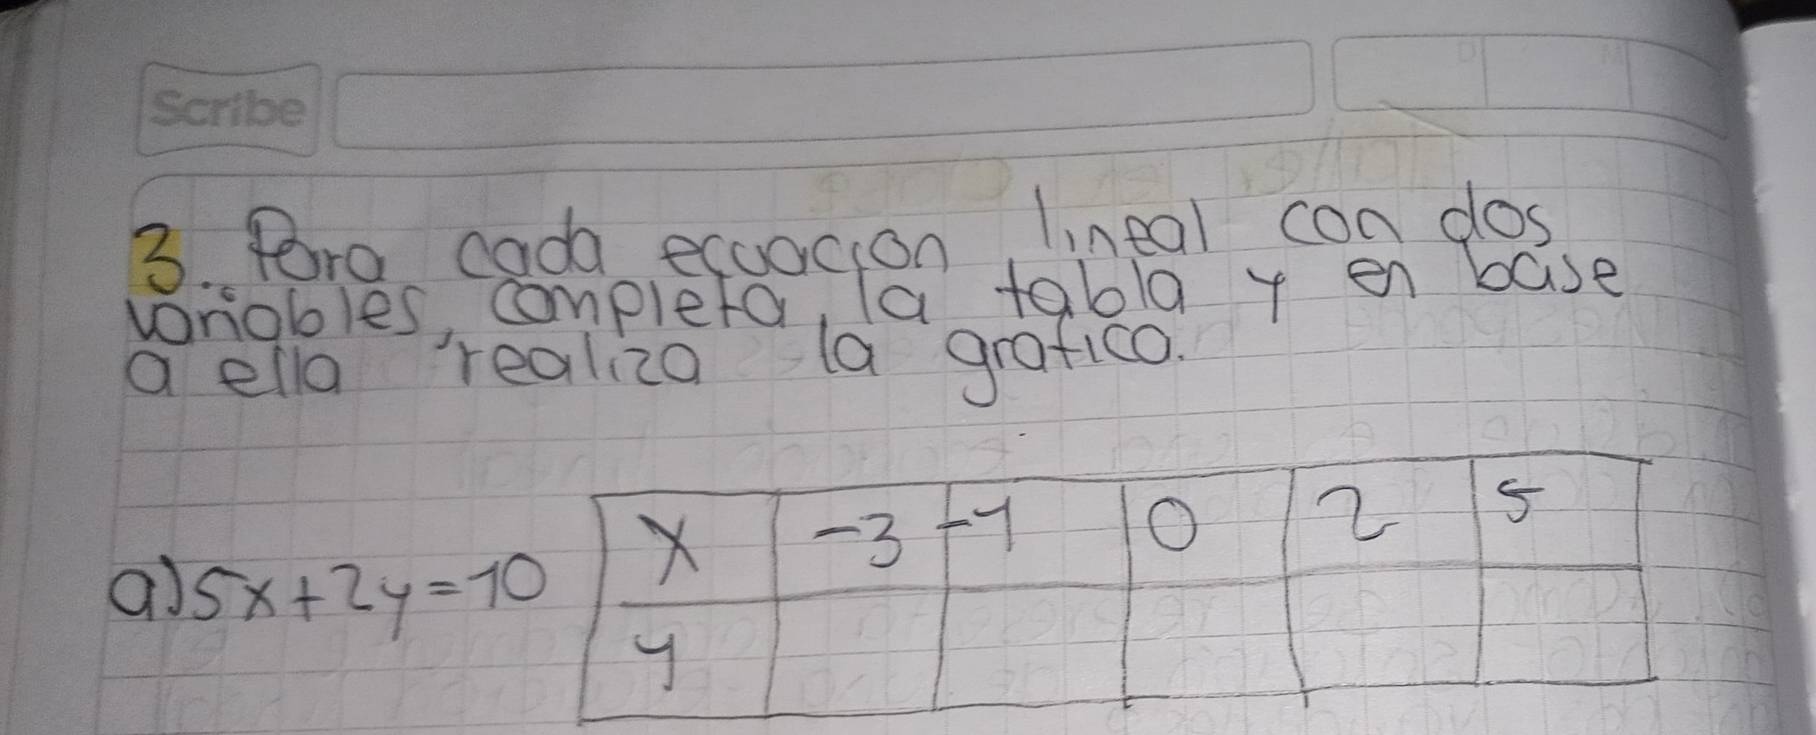 Scribe
3. Para cada ecuacion lineal con dos
variables, completa, la tabla y en base
a ella realiza la grafica.
a) 5x+2y=10
x -3 -1 0 2 5
y